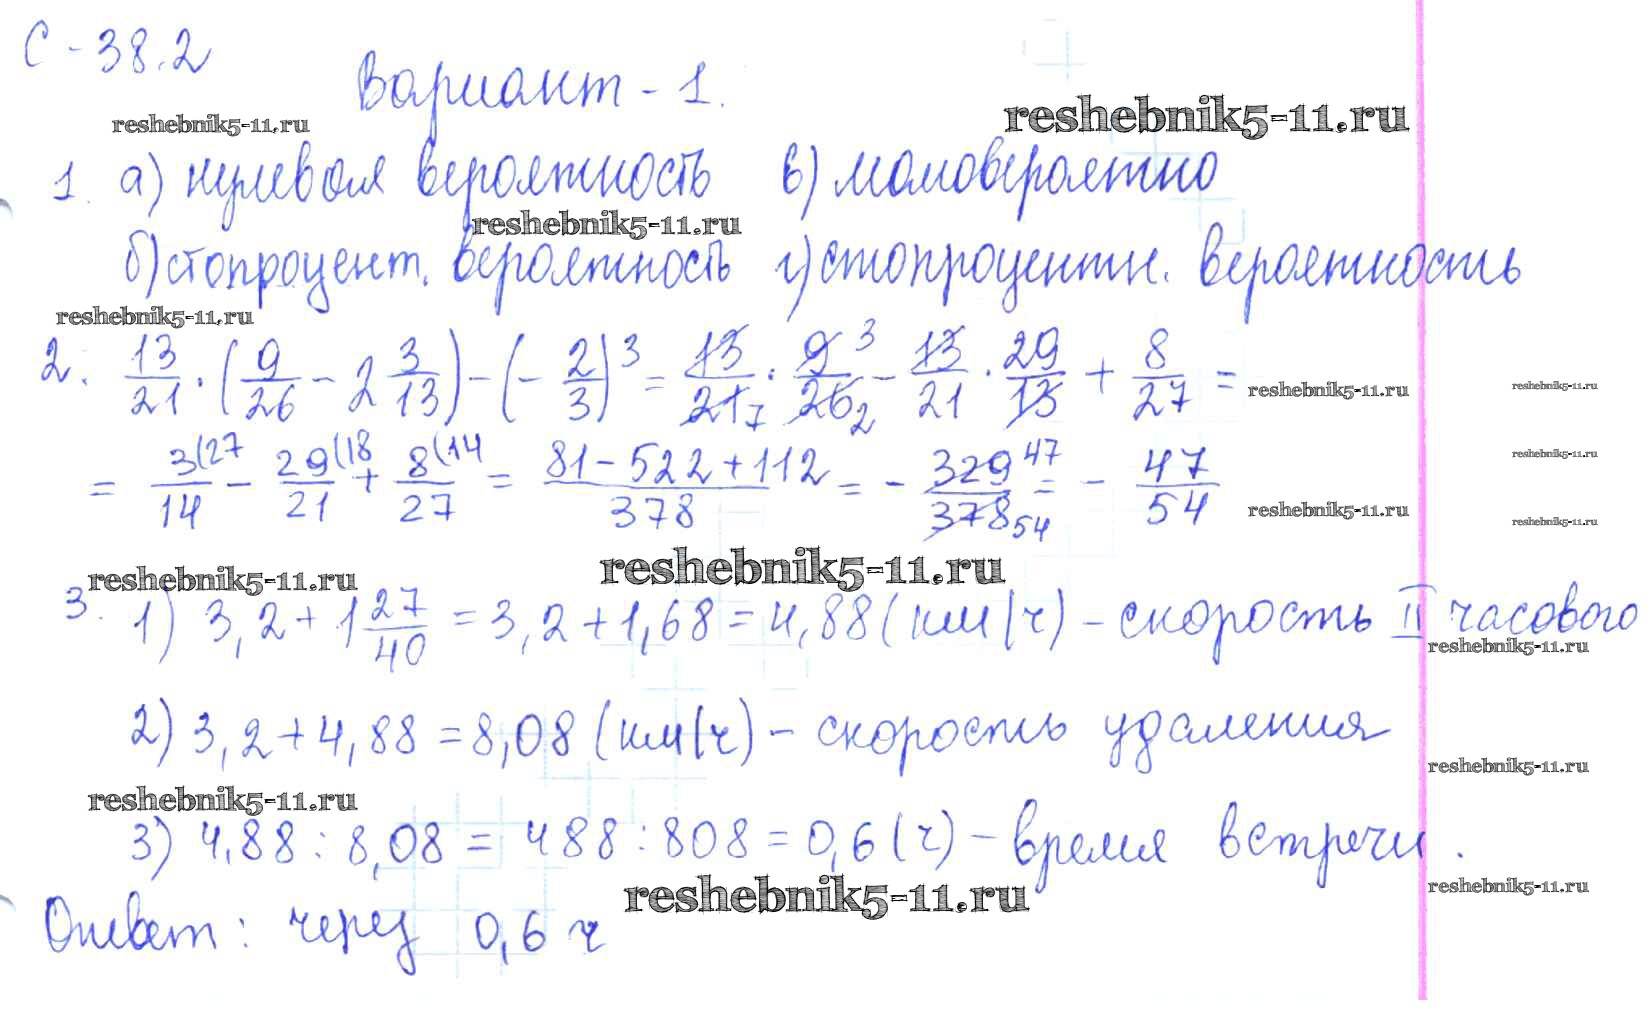 С - 38.2
Вариант - 1.
reshebnik5-11.ru reshebnik5-11.ru
1. а) нулевая вероятность в) маловероятно
reshebnik5-11.ru
б) стопроцент. вероятность г) стопроцентн. вероятность
reshebnik5-11.ru
2. 13/21 · (9/26 - 2 3/13) - (- 2/3)^3 = 13/21 7 · 9 3/26 2 - 13/21 · 29/13 + 8/27 =
reshebnik5-11.ru reshebnik5-11.ru
= 3(27/14 - 29(18/21 + 8(14/27 = 81 - 522 + 112/378 = - 329 47/378 54 = - 47/54
reshebnik5-11.ru
reshebnik5-11.ru reshebnik5-11.ru
reshebnik5-11.ru reshebnik5-11.ru
3. 1) 3,2 + 1 27/40 = 3,2 + 1,68 = 4,88 (км/ч) - скорость II часового
reshebnik5-11.ru
2) 3,2 + 4,88 = 8,08 (км/ч) - скорость удаления
reshebnik5-11.ru
reshebnik5-11.ru
3) 4,88 : 8,08 = 488 : 808 = 0,6 (ч) - время встречи.
reshebnik5-11.ru reshebnik5-11.ru
Ответ: через 0,6 ч